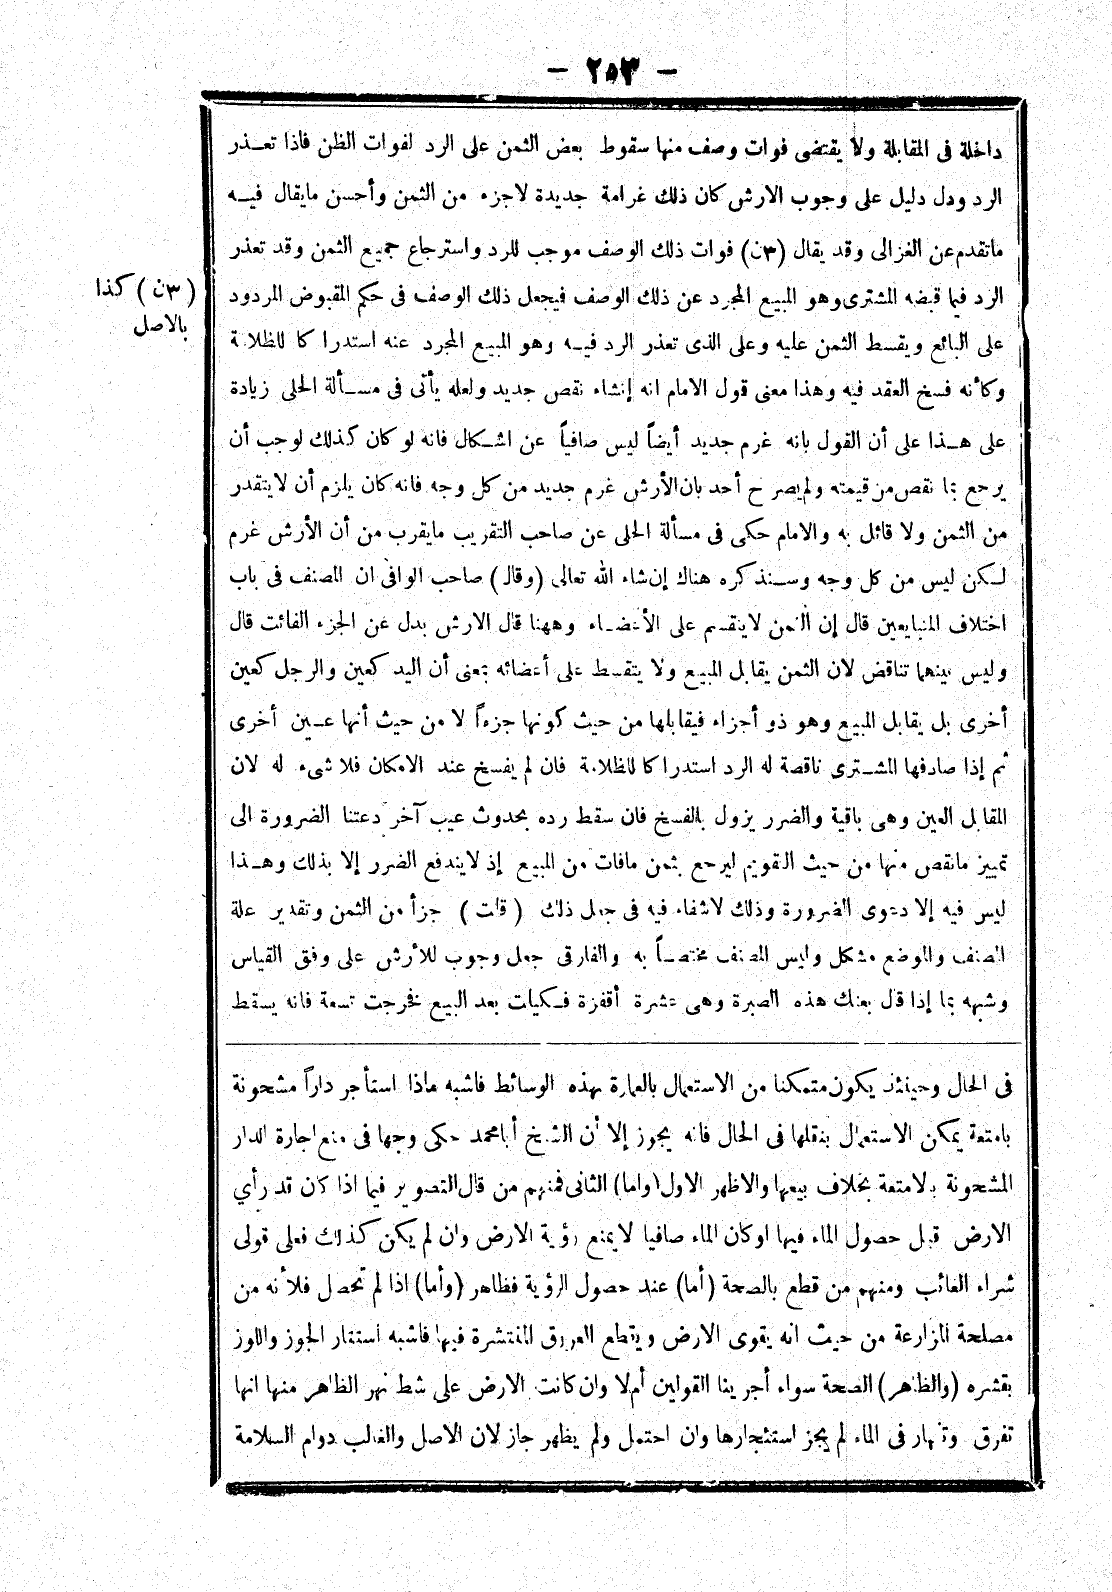 — ٢٥٣ —
داخلة فى المقابلة ولا يقتضى فوات وصف منها سقوط بعض الثمن على الرد لفوات الظن فاذا تعـذر
الرد ودل دليل على وجوب الارش كان ذلك غرامة جديدة لاجزء من الثمن وأحسن مايقال فيـه
ماتقدم عن الغزالى وقد يقال (٣ن) فوات ذلك الوصف موجب للرد واسترجاع جميع الثمن وقد تعذر
الرد فيما قبضه المشترى وهو المبيع المجرد عن ذلك الوصف فيجعل ذلك الوصف فى حكم المقبوض المردود
على البائع ويقسط الثمن عليه وعلى الذى تعذر الرد فيـه وهو المبيع المجرد عنه استدراكا للظلامة
وكأنه فسخ العقد فيه وهذا معنى قول الامام انه إنشاء نقص جديد ولعله يأتى فى مسـألة الحلى زيادة
على هـذا على أن القول بانه غرم جديد أيضاً ليس صافياً عن اشـكال فانه لو كان كذلك لوجب أن
يرجع بما نقص من قيمته ولم يصرح أحد بان الأرش غرم جديد من كل وجه فانه كان يلزم أن لا يتقدر
من الثمن ولا قائل به والامام حكى فى مسألة الحلى عن صاحب التقريب مايقرب من أن الأرش غرم
لـكن ليس من كل وجه وسـنذكره هناك إن شاء الله تعالى (وقال) صاحب الوافى ان المصنف فى باب
اختلاف المتبايعين قال إن الثمن لا ينقسم على الأعضـاء وههنا قال الارش بدل عن الجزء الفائت قال
وليس بينهما تناقض لان الثمن يقابل المبيع ولا يتقسط على أعضائه بمعنى أن اليد كعين والرجل كعين
أخرى بل يقابل المبيع وهو ذو أجزاء فيقابلها من حيث كونها جزءاً لا من حيث أنها عـين أخرى
ثم إذا صادفها المشـترى ناقصة له الرد استدراكا للظلامة فان لم يفسخ عند الامكان فلا شىء له لان
المقابل العين وهى باقية والضرر يزول بالفسخ فان سقط رده بحدوث عيب آخر دعتنا الضرورة الى
تمييز مانقص منها من حيث التقويم ليرجع بثمن مافات من المبيع إذ لايندفع الضرر إلا بذلك وهـذا
ليس فيه إلا دعوى الضرورة وذلك لاشفاء فيه فى جعل ذلك (قلت) جزأ من الثمن وتقدير علة
المصنف والموضع مشكل وليس المصنف مختصـاً به والفارقى جعل وجوب للأرش على وفق القياس
وشبهه بما إذا قال بعتك هذه الصبرة وهى عشرة أقفزة فـكيلت بعد البيع فخرجت تسعة فانه يسقط
(٣ن) كذا
بالاصل
فى الحال وحينئذ يكون متمكنا من الاستعمال بالعمارة بهذه الوسائط فاشبه ماذا استأجر داراً مشحونة
بامتعة يمكن الاستعمال بنقلها فى الحال فانه يجوز إلا أن الشيخ أبا محمد حكى وجها فى منع اجارة الدار
المشحونة بالامتعة بخلاف بيعها والاظهر الاول (واما) الثانى فمنهم من قال التصوير فيما اذا كان قد رأي
الارض قبل حصول الماء فيها اوكان الماء صافيا لا يمنع رؤية الارض وان لم يكن كذلك فعلى قولى
شراء الغائب ومنهم من قطع بالصحة (أما) عند حصول الرؤية فظاهر (وأما) اذا لم تحصل فلأنه من
مصلحة المزارعة من حيث انه يقوى الارض ويقطع العروق المنتشرة فيها فاشبه استتار الجوز واللوز
بقشره (والظاهر) الصحة سواء أجرينا القولين أم لا وان كانت الارض على شط نهر الظاهر منها انها
تغرق وتنهار فى الماء لم يجز استئجارها وان احتمل ولم يظهر جاز لان الاصل والغالب دوام السلامة